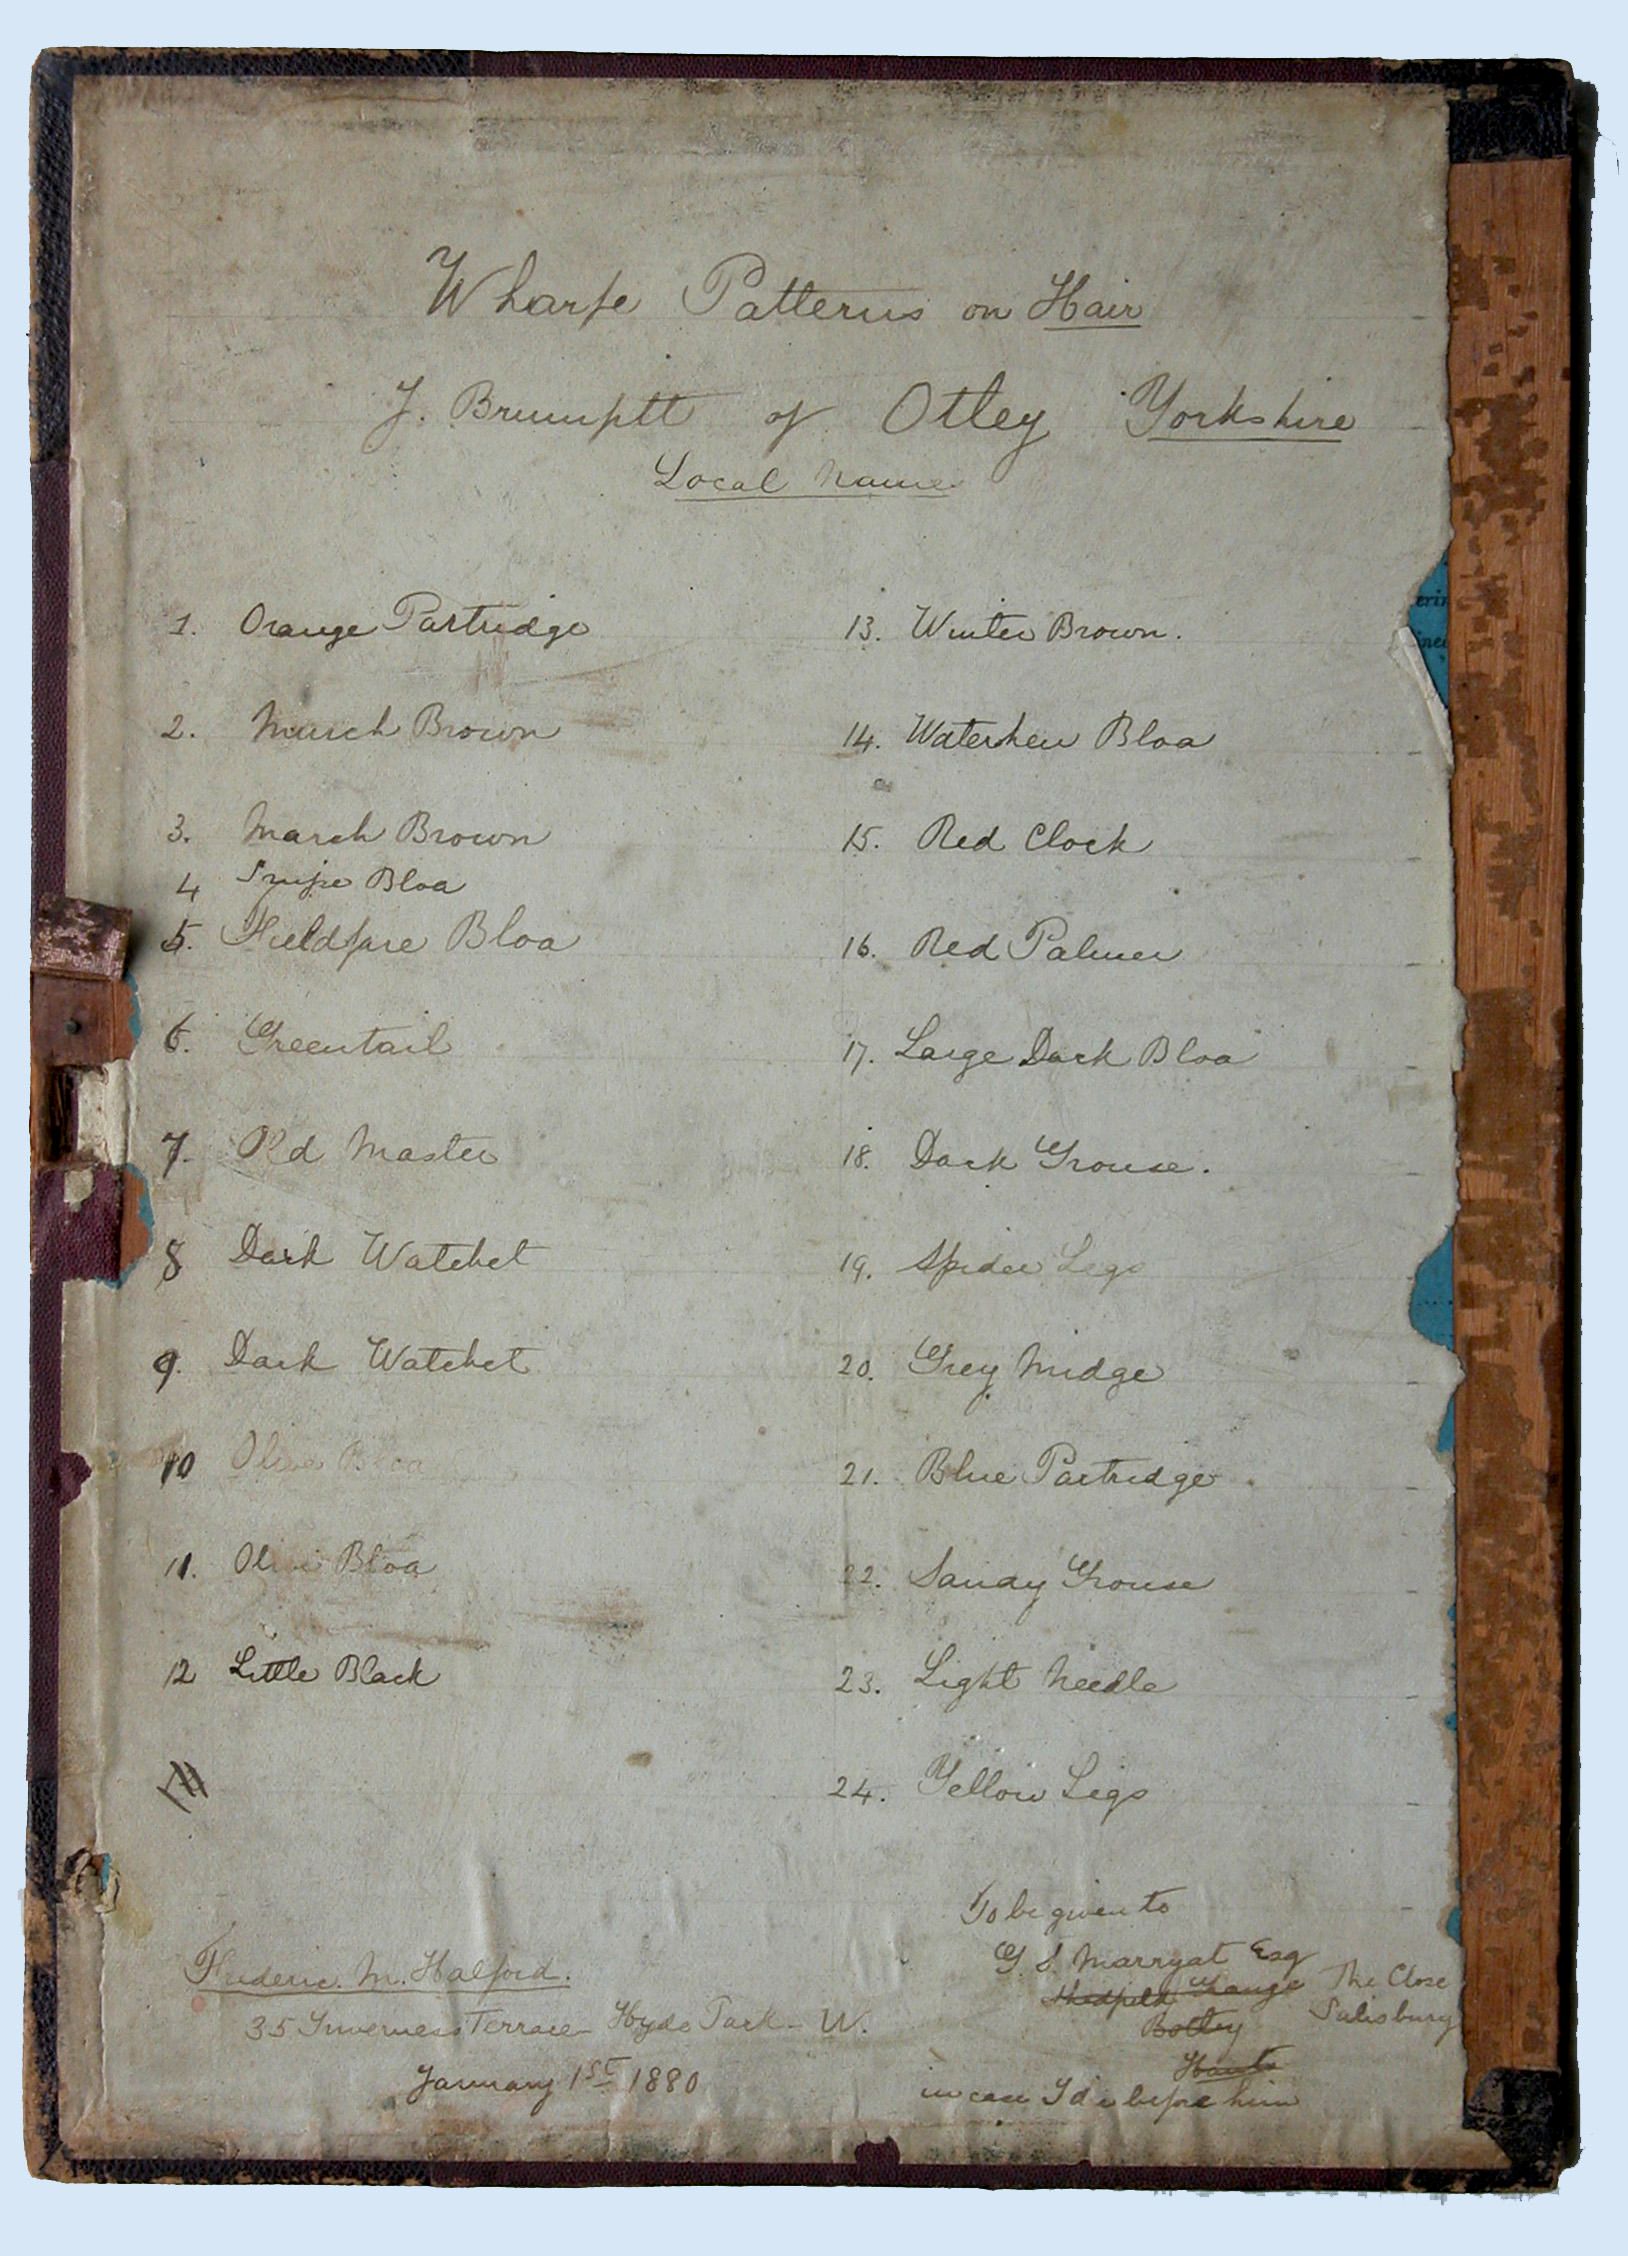 Wharfe Patterns on Hair
J. Brumptt of Otley Yorkshire
Local Name
1. Orange Partridge
2. March Brown
3. March Brown
4 Snipe Bloa
5. Fieldfare Bloa
6. Greentail
7. Old Master
8 Dark Watchet
9. Dark Watchet
10 Olive Bloa
11. Olive Bloa
12 Little Black
13. Winter Brown.
14. Waterhen Bloa
15. Red Clock
16. Red Palmer
17. Large Dark Bloa
18. Dark Grouse.
19. Spider Legs
20. Grey Midge
21. Blue Partridge
22. Sandy Grouse
23. Light Needle
24. Yellow Legs
Frederic. M. Halford.
35 Inverness Terrace - Hyde Park - W.
January 1st 1880
To be given to
G. S. Marryat Esq
Shedfield Grange The Close
Botley Salisbury
Hants
in case I die before him